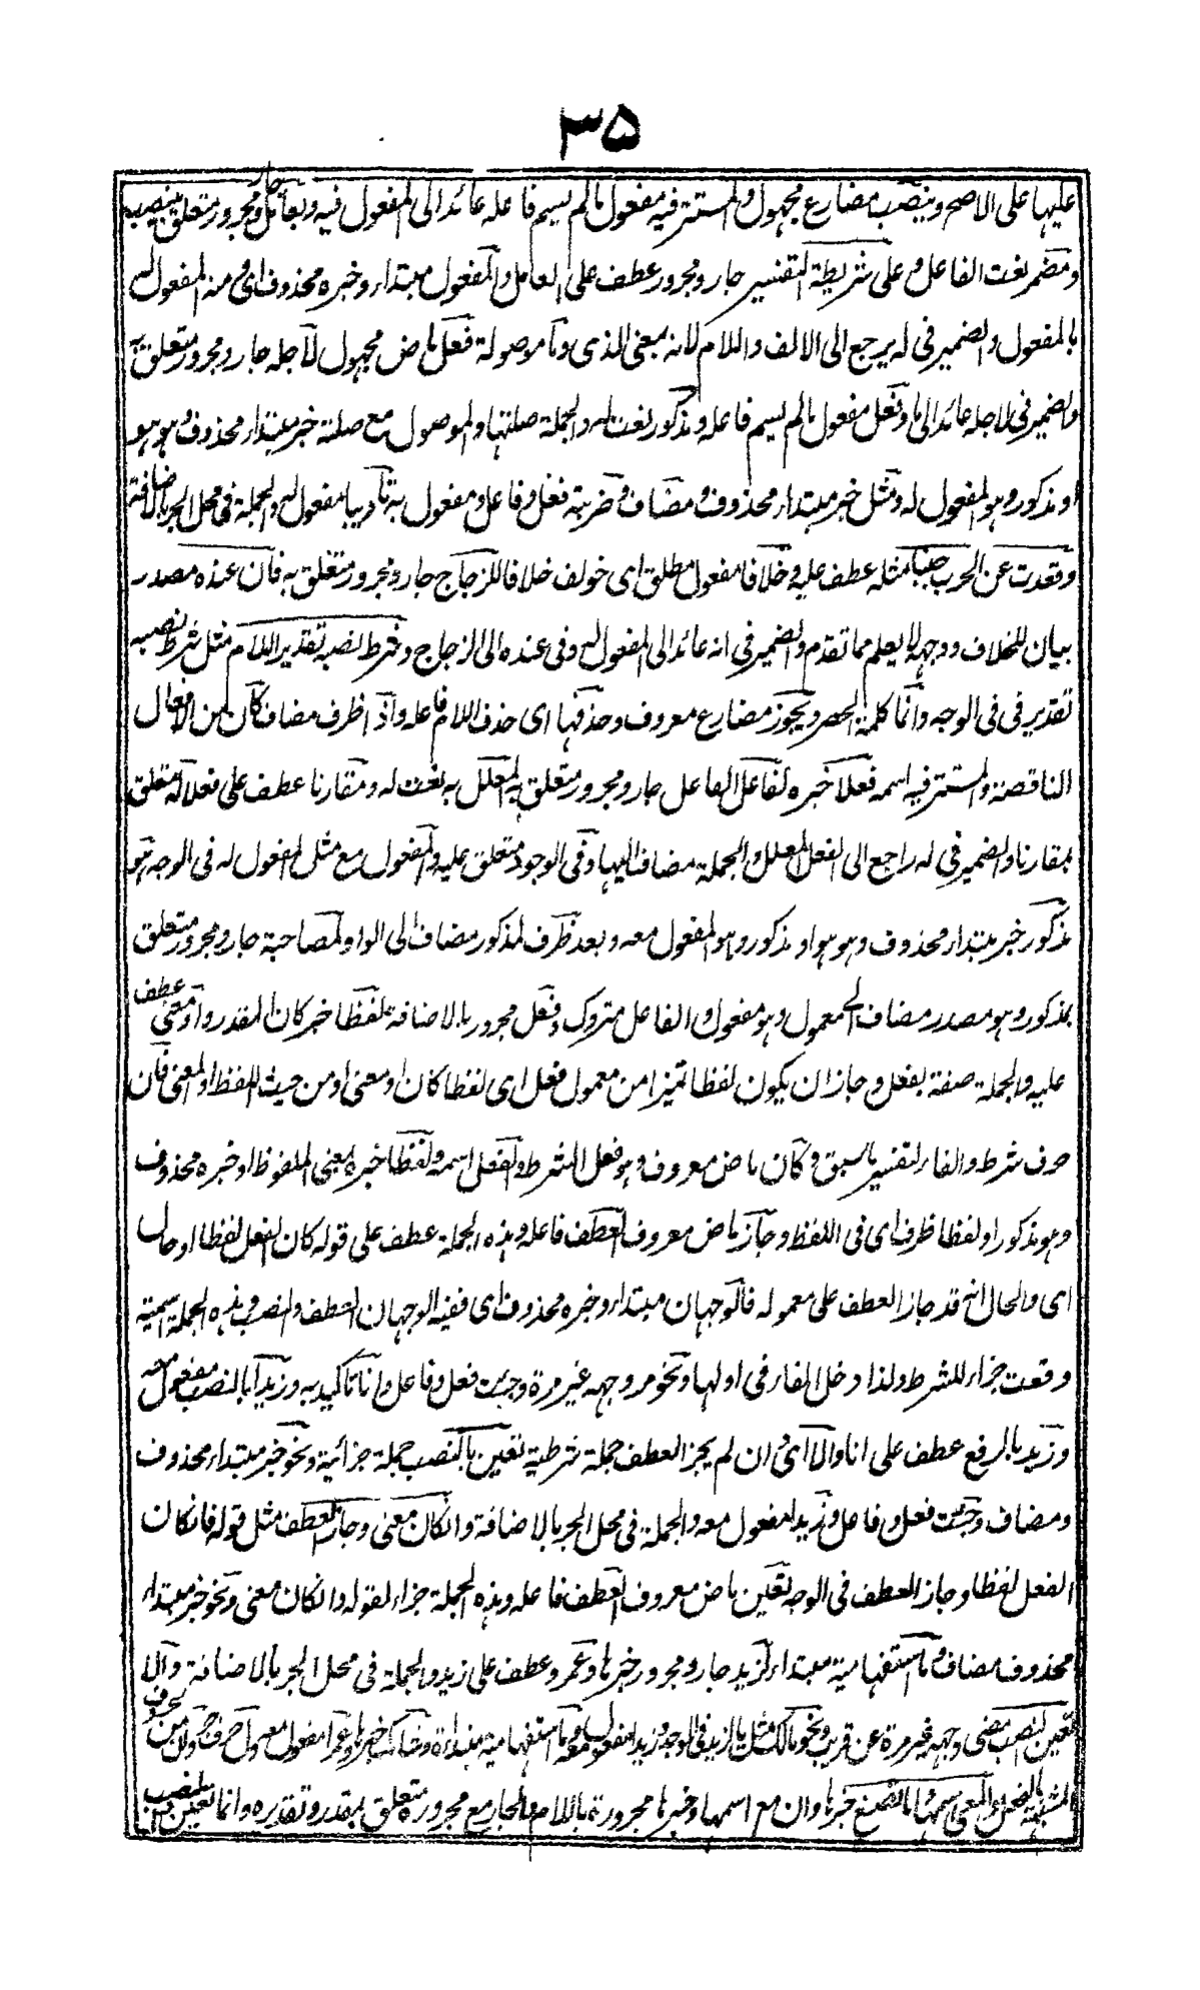 ۳۵
عليها على الاصح وينصب مضارع مجهول والمستتر فيه مفعول مالم يسم فاعله عائد الى المفعول فيه وبعامل جار ومجرور متعلق بينصب
ومضمر نعت الفاعل وعلى شريطة التفسير جار ومجرور عطف على العامل والمفعول مبتداء وخبره محذوف اى ومنه المفعول له
بالمفعول والضمير فى له يرجع الى الالف واللام لانه بمعنى الذى وما موصولة فعل ماض مجهول لاجله جار ومجرور متعلق به
والضمير فى لاجله عائد الى ما وفعل مفعول مالم يسم فاعله ومذكور نعت له والجملة صلتها والموصول مع صلته خبر مبتداء محذوف وهو هو
او مذكور وهو المفعول له ومثل خبر مبتداء محذوف ومضاف وضربته فعل وفاعل ومفعول به تأديبا مفعول له والجملة فى محل الجر بالاضافة
وقعدت عن الحرب جبنا مثله عطف عليه وخلافا مفعول مطلق اى خولف خلافا للزجاج جار ومجرور متعلق به فان عنده مصدر
بيان للخلاف ووجهه يعلم مما تقدم والضمير فى انه عائد الى المفعول له وفى عنده الى الزجاج وشرط نصبه تقدير اللام مثل شرط نصبه
تقدير فى فى الوجه وانما كلمة الحصر ويجوز مضارع معروف وحذفها اى حذف اللام فاعله واذا ظرف مضاف كان من الافعال
الناقصة والمستتر فيه اسمه فعلا خبره لفاعل الفاعل جار ومجرور متعلق به المعلل به نعت له ومقارنا عطف على فعلا له متعلق
بمقارنا والضمير فى له راجع الى الفعل المعلل والجملة مضاف اليها وفى الوجود متعلق عليه والمفعول مع مثل المفعول له فى الوجه هو
مذكور خبر مبتداء محذوف وهو هو او مذكور وهو المفعول معه وبعد ظرف لمذكور مضاف الى الواو لمصاحبة جار ومجرور متعلق
بمذكور وهو مصدر مضاف الى معمول وهو مفعول والفاعل متروك وفعل مجرور بالاضافة لفظا خبر كان المقدر او معنى عطف
عليه والجملة صفة بفعل وجاز ان يكون لفظا تميزا من معمول فعل اى لفظا كان او معنى او من حيث اللفظ او المعنى فان
حرف شرط والفاء لتفسير ما سبق وكان ماض معروف وهو فعل الشرط والفعل اسمه ولفظا خبره بمعنى الملفوظ او خبره محذوف
وهو مذكور او لفظا ظرف اى فى اللفظ وجاز ماض معروف العطف فاعله وهذه الجملة عطف على قوله كان الفعل لفظا او حال
اى والحال انه قد جاز العطف على معموله فالوجهان مبتداء وخبره محذوف اى ففيه الوجهان العطف والنصب وهذه الجملة اسمية
وقعت جزاء للشرط ولذا دخل الفاء فى اولها ونحو مر وجهه غير مرة وجئت فعل وفاعل وانا تاكيد به وزيدا بالنصب مفعول معه
وزيد بالرفع عطف على انا والا اى وان لم يجز العطف جملة شرطية تعين بالنصب جملة جزائية ونحو خبر مبتداء محذوف
ومضاف وجئت فعل وفاعل وزيدا مفعول معه والجملة فى محل الجر بالاضافة وانكان معنى وجاز العطف مثل قوله فانكان
الفعل لفظا وجاز العطف فى الوجه تعين ماض معروف العطف فاعله وهذه الجملة جزاء لقوله وانكان معنى ونحو خبر مبتداء
محذوف مضاف وما استفهامية مبتداء لزيد جار ومجرور خبرها وعمرو عطف على زيد والجملة فى محل الجر بالاضافة والا
تعين النصب مضى وجهه غير مرة عن قريب ونحو مالك مثل ما لزيد فى الوجه وزيدا مفعول معه وما استفهامية مبتداءة وشانك خبرها وعمرا مفعول معه ولان حرف جر وان من الحروف
المشبهة بالفعل والمعنى اسمها وما تصنع خبرها وان مع اسمها وخبرها مجرورة باللام والجار مع مجروره متعلق بمقدر وتقديره وانما تعين النصب